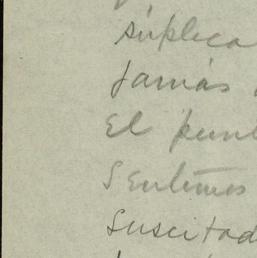 súplica
Jamás
El punt
Sentimos
suscitad